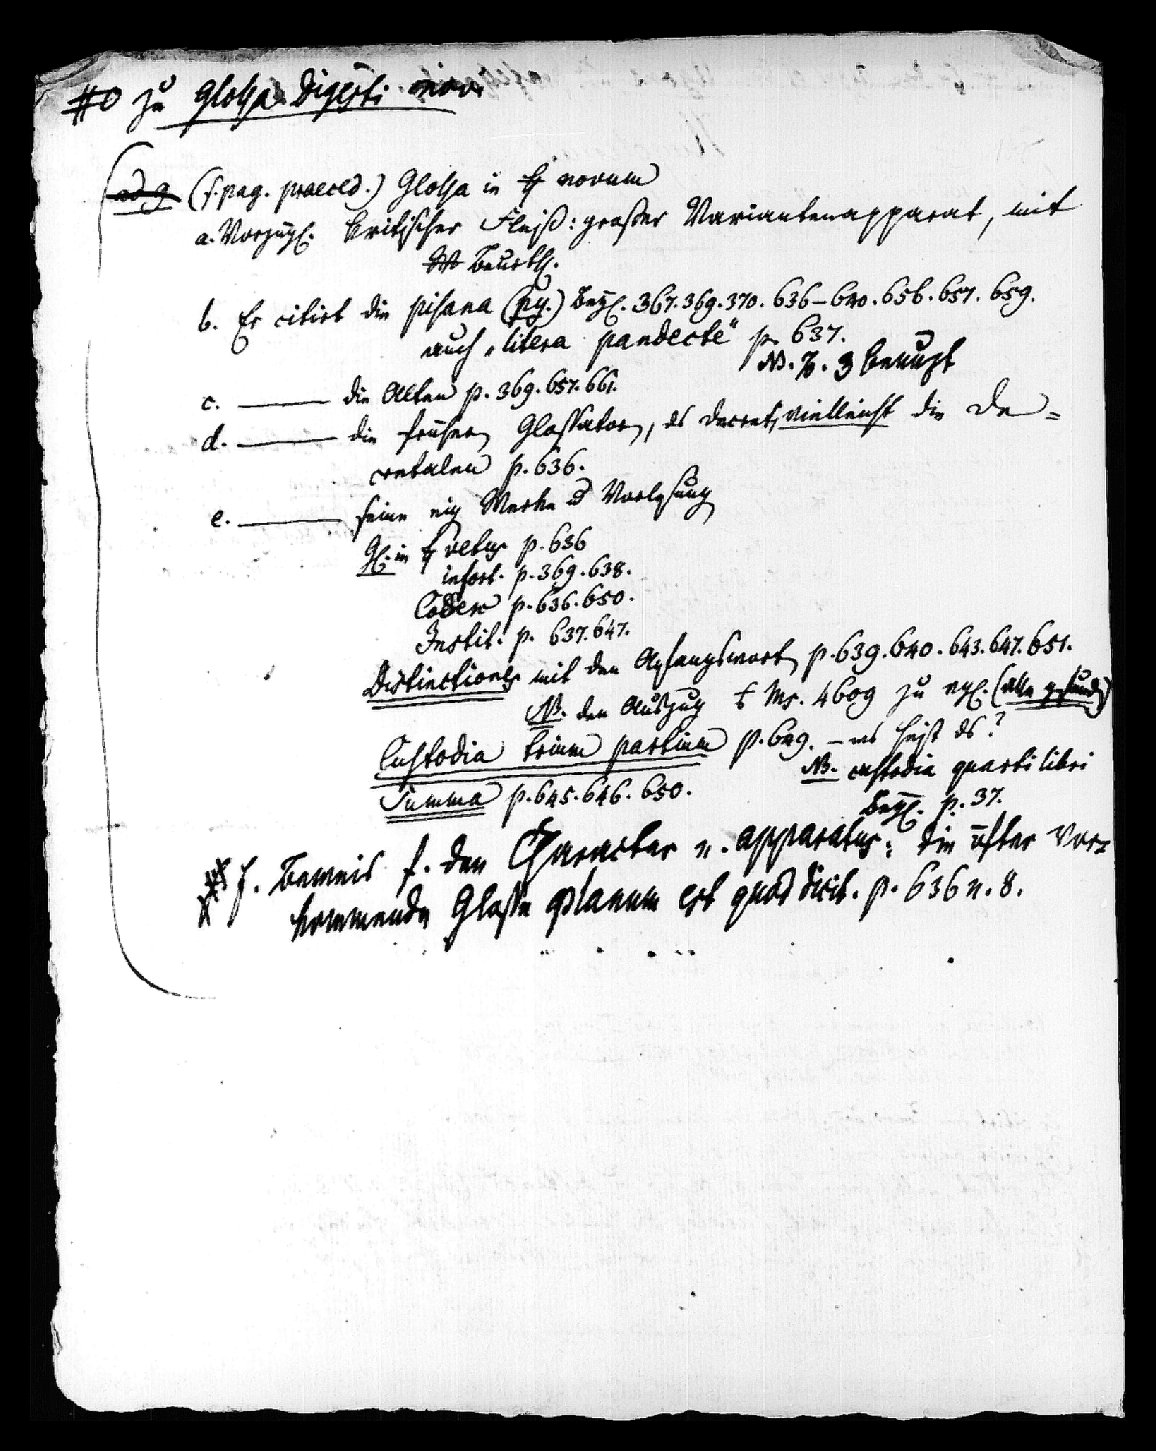 #0 zu Glossa Digesti novi
ad g (s. pag. praeced.) Glossa in ff novum
a. Vorzügl. kritischer Fleiß: großer Variantenapparat, mit
Beurth.
b. Er citirt die pisana (py.) Bezl. 367. 369. 370. 636–640. 656. 657. 659.
auch „litera pandecte“ p. 637.
NB. 3 benutzt
c. ——— die Alten p. 369. 657. 661.
d. ——— die frühern Glossatoren, das Decret, vielleicht die De=
cretalen p. 636.
e. ——— seine eig Werke u Vorlesung
Gl. in ff vetus p. 636
infort. p. 369. 638.
Codex p. 636. 650.
Instit. p. 637. 647.
Distinctiones mit den Anfangsworten p. 639. 640. 643. 647. 651.
NB. den Auszug Ms. 4609 zu vgl. (alle gefunden)
Custodia trium partium p. 649. – was heißt das?
NB. custodia quarti libri
Bezl. p. 37.
Summa p. 645. 646. 650.
f. Beweis f. den Character u. apparatus: die öfter vor=
kommende Glosse planum est quod dicit. p. 636 n. 8.